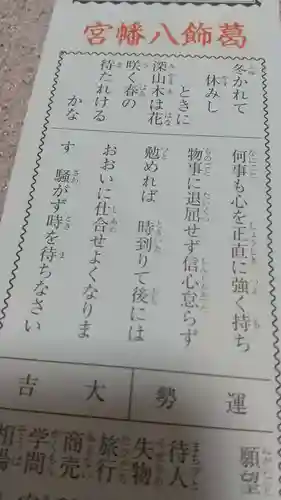 葛飾八幡宮
冬かれて
休みし
ときに
深山木は花
咲く春の
待たれける
かな
何事も心を正直に強く持ち
物事に退屈せず信心怠らず
勉めれば 時到りて後には
おおいに仕合せよくなりま
す 騒がず時を待ちなさい
運勢
大吉
願望
待人
失物
旅行
商売
学問
相場